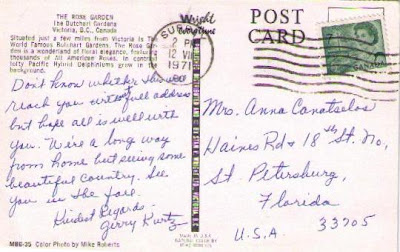 THE ROSE GARDEN
The Butchart Gardens
Victoria, B.C., Canada
Situated just a few miles from Victoria is The
World Famous Butchart Gardens. The Rose Gar-
den is a wonderland of floral elegance, featuring
thousands of All American Roses. In contrast
lofty Pacific Hybrid Delphiniums grow in the
background.
Don't know whether this will
reach you without full address
but hope all is well with
you. We're a long way
from home but seeing some
beautiful country. See
you in the fall.
Kindest Regards -
Jerry Kurtz
MBG-35 Color Photo by Mike Roberts
Wright
Everytime
PM
12 VII
1971
POST
CARD
CANADA
Mrs. Anna Canataelos
Haines Rd & 18th St. No,
St. Petersburg,
Florida
U.S.A. 33705